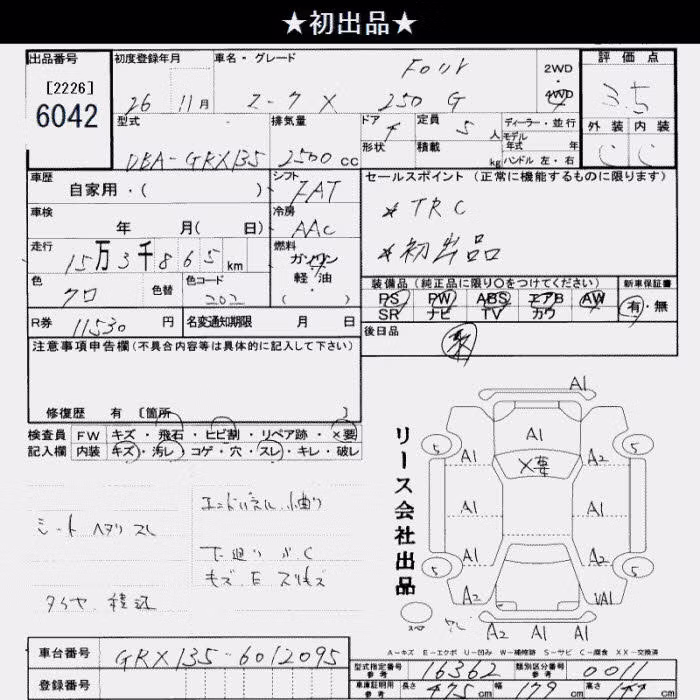 ★初出品★
出品番号 初度登録年月 車名・グレード 評価点
[2226]
6042
26 11月 マークX Four 250 G 2WD・4WD 3.5
型式 排気量 ドア 定員 ディーラー・並行 外装 内装
DBA-GRX135 2500cc 4 5人 モデル年式 年 C C
形状 積載 kg ハンドル 左・右
車歴 シフト セールスポイント(正常に機能するものに限ります)
自家用・( ) FAT
＊TRC
車検 冷房
年 月( 日) AAC
＊初出品
走行 燃料
15万3千865km ガソリン
軽油・
( )
色 色替 色コード 装備品(純正品に限り○をつけてください) 新車保証書
クロ 202 PS PW ABS エアB AW 有・無
SR ナビ TV カワ
R券 11530円 名変通知期限 月 日 後日品
注意事項申告欄(不具合内容等は具体的に記入して下さい)
修復歴 有 [箇所 ]
検査員 FW キズ・飛石・ヒビ割・リペア跡・×要
記入欄 内装 キズ・汚レ・コゲ・穴・スレ・キレ・破レ
リース会社出品
シートヘタリスレ
エンドパネル小曲り
下廻り
タイヤ
A1
A1
×要
5 A1 A2 5
A1 A1
A1 A2
5 5
A2
A2 A1 A1
A-キズ E-エクボ U-凹み W-補修跡 S-サビ C-腐食 XX-交換済
車台番号 GRX135-6012095
型式指定番号 参考 16362 類別区分番号 参考 0011
登録番号
車庫証明用 参考 長さ 475cm 幅 179cm 高さ cm